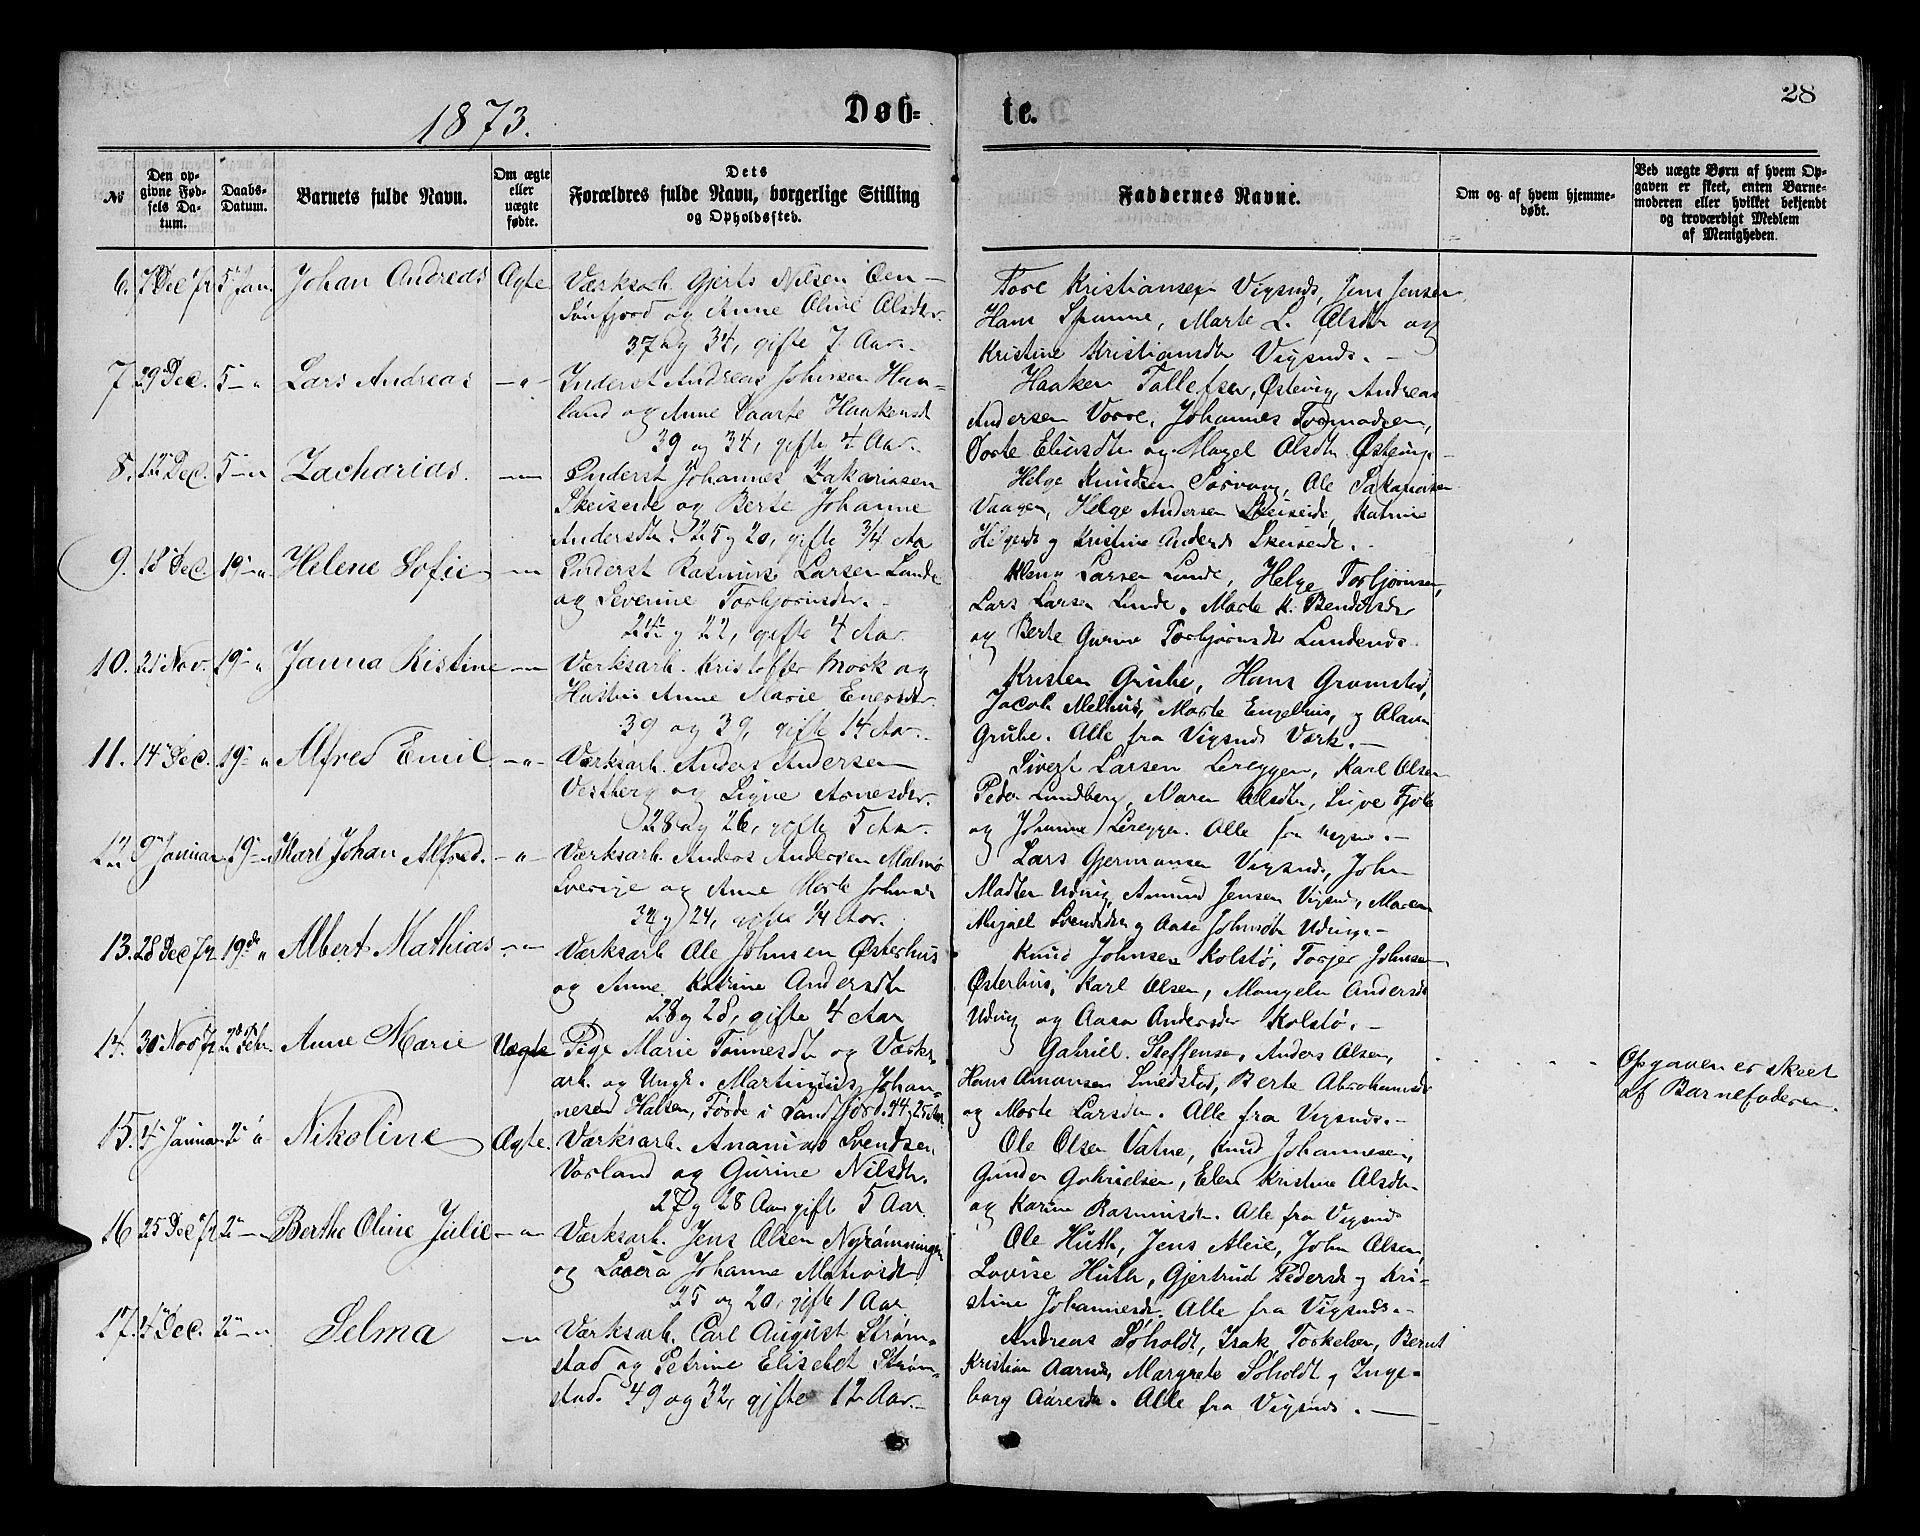 28
1873.
Døb-
te.
№
Den op-
givne Fød-
sels Da-
tum.
Daabs-
Datum.
Barnets fulde Navn.
Om ægte
eller
uægte
fødte.
Dets
Forældres fulde Navn, borgerlige Stilling
og Opholdssted.
Faddernes Navne.
Om og af hvem hjemme-
døbt.
Ved uægte Børn af hvem Op-
gaven er skeet, enten Barne-
moderen eller hvilket bekjendt
og troværdigt Medlem
af Menigheden.
6. 7 Dec 72 5 Jan. Johan Andreas Ægte Værksarb. Gjerts Nilsen Øen
Sønfjord og Anne Oline Olsdtr.
37 og 34, gifte 7 Aar.
Tore Kristiansen Vigsnæs, Jens Jensen
Hans Spanne, Marte L. Olsdtr og
Kristine Kristiansdtr Vigsnds.
7. 29 Dec. 5 - " Lars Andreas - " - Inderst Andreas Johnsen Haa-
land og Anne Haakensd
39 og 34, gifte 4 Aar.
Haaken Tollefsen, Østevig, Andreas
Andersen Vorre, Johannes Tormodsen,
Dorte Eliasdtr og Magel Olsdtr Østevig
8. 12 Dec. 5 - " Zacharias. - " - Inderst Johannes Zakariasen
Skeiseide og Berte Johanne
Andersdtr. 25 og 20, gifte 3/4 Aar
Helge Knudsen Sørvaag, Ole Sakariasen
Vaagen, Helge Andersen Skeiseide, Katrine
Helgesd og Kristine Andersd Skeiseide.
9. 18 Dec. 19 - " Helene Sofie - " - Inderst Rasmus Larsen Lunde
og Severine Torbjørnsdtr.
24 og 22, gifte 4 Aar.
Larsen Lunde, Helge Torbjørnsen,
Lars Larsen Lunde, Marte K. Bendiksdtr
og Berte Gurine Torbjørnsdtr Lundends.
10. 21 Nov. 19 - " Janna Kistine - " - Værksarb. Kristoffer Mork og
Hustru Anne Marie Enersdtr.
39 og 39, gifte 14 Aar.
Kristen Grube, Hans Gromstad,
Jacob Melhus, Marte Engelhus, og Olava
Grube. Alle fra Vigsnds Værk.
11. 14 Dec. 19 - " Alfred Emil - " - Værksarb. Anders Andersen
Vestberg og Signe Arnesdtr.
28 og 26, gifte 5 Aar.
Sivert Larsen Lereggen, Karl Olsen
Peder Lundberg, Maren Olsdtr,
og Johanne Lereggen. Alle fra Vigsn.
12 9 Januar 19 - " Karl Johan Alfred. - " - Værksarb. Anders Andersen Malmø
Sverige og Anne Marte Johnsd
32 og 24, gifte 1/4 Aar.
Lars Gjermansen Vigsnds, John
Madsen Udvig, Amund Jensen Vigsnd, Maren
Svendsdtr og Aasa Johnsdtr Udvig.
13. 28 Dec 72 19de " Albert Mathias - " - Værksarb Ole Johnsen Østerhus
og Anne Katrine Andersdtr
28 og 28, gifte 4 Aar
Knud Johnsen Kolstø, Torjer Johnsen
Østerhus, Karl Olsen, Mangela Andersd
Udvig og Aasa Andersdtr Kolstø.
14. 30 Nov 72 2 Febr. Anne Marie Uægte Pige Marie Tønnesdtr og Værks-
arb. og Ungk. Martinius Johan-
nesen Halsen, Førde i Søndfjord. 44 og 25 Aar.
Gabriel Steffensen, Anders Olsen,
Hans Amansen Smedstad, Berte Abrahamsdtr
og Marte Larsdtr. Alle fra Vigsnds.
Opgaven er skeet
af Barnefaderen.
15. 4 Januar 2 " Nikoline Ægte. Værksarb. Ananias Svendsen
Vorland og Gurine Nilsdtr.
27 og 28 Aar, gifte 5 Aar.
Ole Olsen Vatne, Knud Johannesen,
Gunder Gabrielsen, Elen Kristine Olsdtr
og Karine Rasmusdtr. Alle fra Vigsnds
16 25 Dec 72 2 - " Berthe Oline Julie - " - Værksarb. Jens Olsen Nyrømningen
og Laura Johanne Matiasdtr
25 og 20, gifte 1 Aar.
Ole Huth, Jens Aleie, John Olsen,
Lovise Huth, Gjertrud Pedersd og Kri-
stine Johannesdtr. Alle fra Vigsnds.
17. 4 Dec. 2 - " Selma - " Værksarb. Carl August Strøm-
stad og Petrine Elisebet Strøm-
stad. 49 og 32, gifte 12 Aar.
Andreas Søholdt, Isak Torkelsen, Bernt
Kristian Aarnds, Margrete Søholdt og Inge-
borg Aaresdtr. Alle fra Vigsnds.